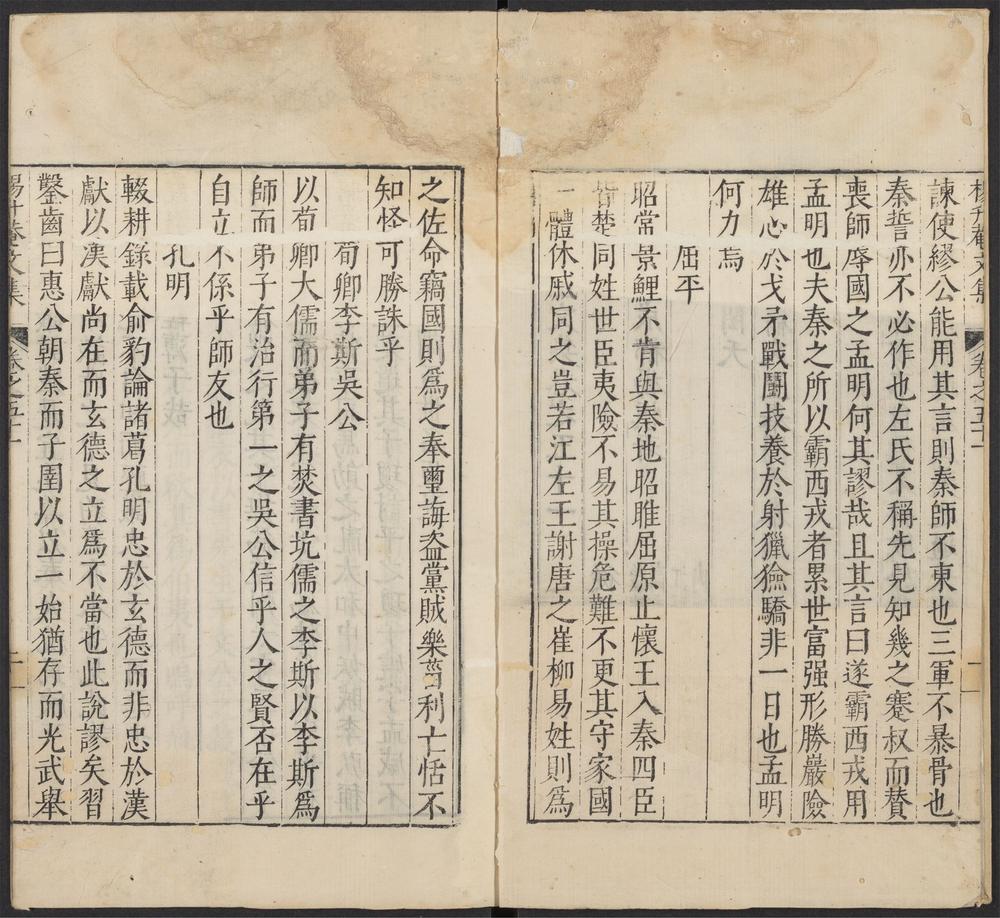 楊升菴文集 卷之五十一 十一
諫使繆公能用其言則秦師不東也三軍不暴骨也
秦誓亦不必作也左氏不稱先見知幾之蹇叔而賛
喪師辱國之孟明何其謬哉且其言曰遂霸西戎用
孟明也夫秦之所以霸西戎者累世富强形勝嚴險
雄心於戈矛戰鬬技養於射獵獫驕非一日也孟明
何力焉
屈平
昭常景鯉不肯與秦地昭睢屈原止懷王入秦四臣
皆楚同姓世臣夷險不易其操危難不更其守家國
一體休戚同之豈若江左王謝唐之崔柳易姓則爲
之佐命竊國則爲之奉璽誨盗黨賊樂菑利亡恬不
知怪可勝誅乎
荀卿李斯吳公
以荀卿大儒而弟子有焚書坑儒之李斯以李斯爲
師而弟子有治行第一之吳公信乎人之賢否在乎
自立不係乎師友也
孔明
輟耕錄載俞豹論諸葛孔明忠於玄德而非忠於漢
獻以漢獻尚在而玄德之立爲不當也此說謬矣習
鑿齒曰惠公朝秦而子圉以立一始猶存而光武舉
楊升菴文集 卷之五十一